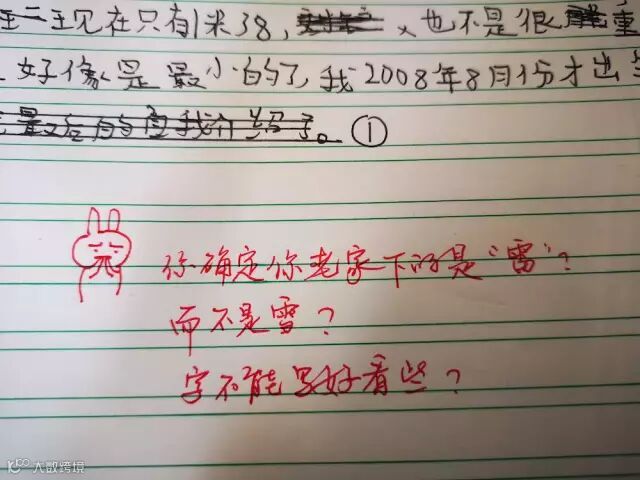 现在只有1米38，也不是很重
好像是最小的了，我2008年8月份才出
最后的自我介绍了。①
你确定你老家下的是“雷”？
而不是雪？
字不能写好看些？
大数跨境